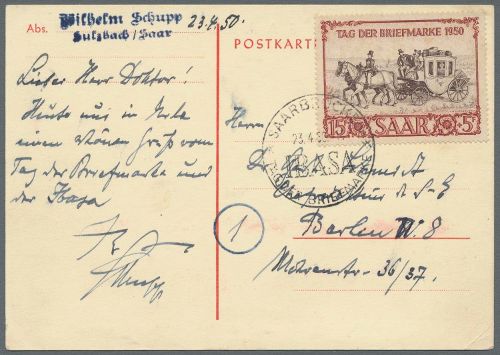 Abs.
Wilhelm Schupp
Sulzbach/Saar
23.4.50.
POSTKARTE
TAG DER BRIEFMARKE 1950
15 SAAR 5
SAARBRÜCKEN
23.4.50
IBASA
TAG DER BRIEFMARKE
Lieber Herr Doktor!
Heute nur in Eile
einen schönen Gruß vom
Tag der Briefmarke und
der Ibasa
Schupp
Herrn
Dr.
1
Berlin W. 8
Mohrenstr. 36/37.